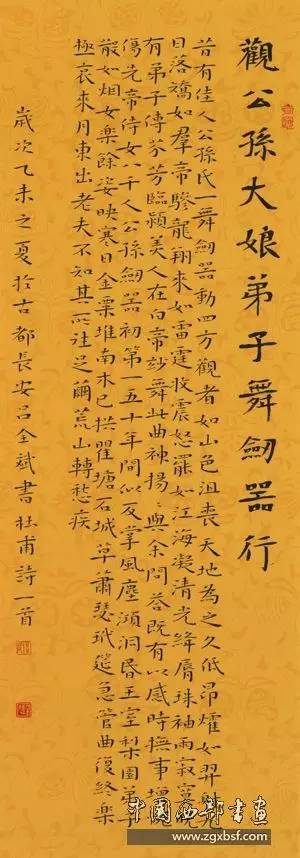 觀公孫大娘弟子舞劍器行
昔有佳人公孫氏一舞劍器動四方觀者如山色沮喪天地為之久低昂㸌如羿射九
日落矯如羣帝驂龍翔來如雷霆收震怒罷如江海凝清光絳脣珠袖兩寂寞晚
有弟子傳芬芳臨潁美人在白帝妙舞此曲神揚〻與余問答既有以感時撫事增
傷先帝侍女八千人公孫劍器初第一五十年間似反掌風塵澒洞昏王室梨園弟子
散如烟女樂餘姿映寒日金粟堆南木已拱瞿塘石城草蕭瑟玳筵急管曲復終樂
極哀來月東出老夫不知其所往足繭荒山轉愁疾
歲次乙未之夏於古都長安呂全斌書杜甫詩一首
中國西部書畫
www.zgxbsf.com